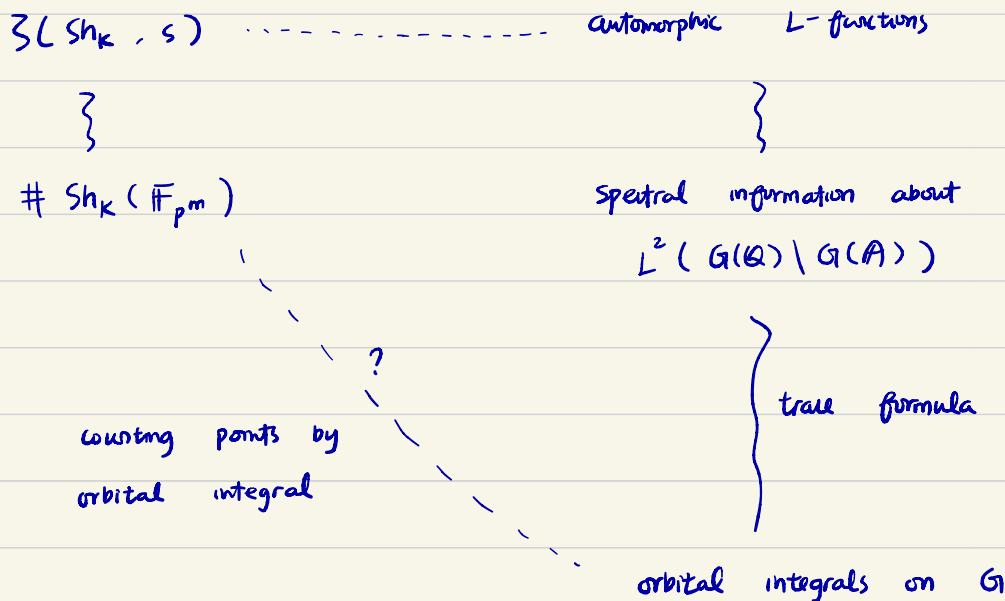 ζ(Sh_K, s) ------------ automorphic L-functions
# Sh_K(𝔽_{p^m}) Spectral information about
L²(G(ℚ)\G(𝔸))
?
trace formula
counting points by
orbital integral
orbital integrals on G